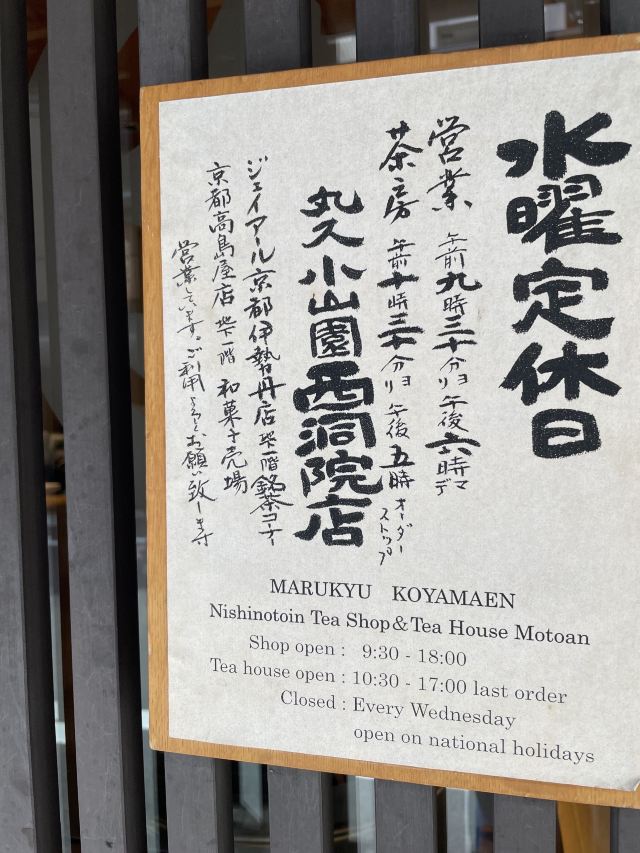 水曜定休日
営業 午前九時三十分ヨリ午後六時マデ
茶房 午前十時三十分ヨリ午後五時オーダーストップ
丸久小山園西洞院店
ジェイアール京都伊勢丹店 地下一階 銘茶コーナー
京都高島屋店 地下一階 和菓子売場
営業しています。ご利用よろしくお願い致します
MARUKYU KOYAMAEN
Nishinotoin Tea Shop&Tea House Motoan
Shop open : 9:30 - 18:00
Tea house open : 10:30 - 17:00 last order
Closed : Every Wednesday
open on national holidays